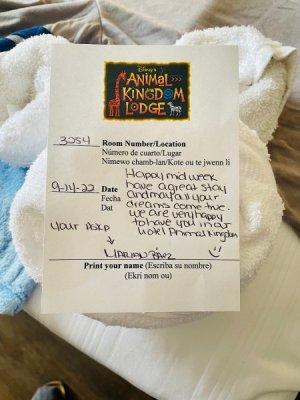 Disney's
ANIMAL
KINGDOM
LODGE
3254 Room Number/Location
Número de cuarto/Lugar
Nimewo chamb-lan/Kote ou te jwenn li
Happy mid week
9-14-22 Date have a great stay
Fecha and may all your
Dat dreams come true.
we are very happy
Your to have you in our
hotel Animal Kingdom
Marian Báez
Print your name (Escriba su nombre)
(Ekri non ou)